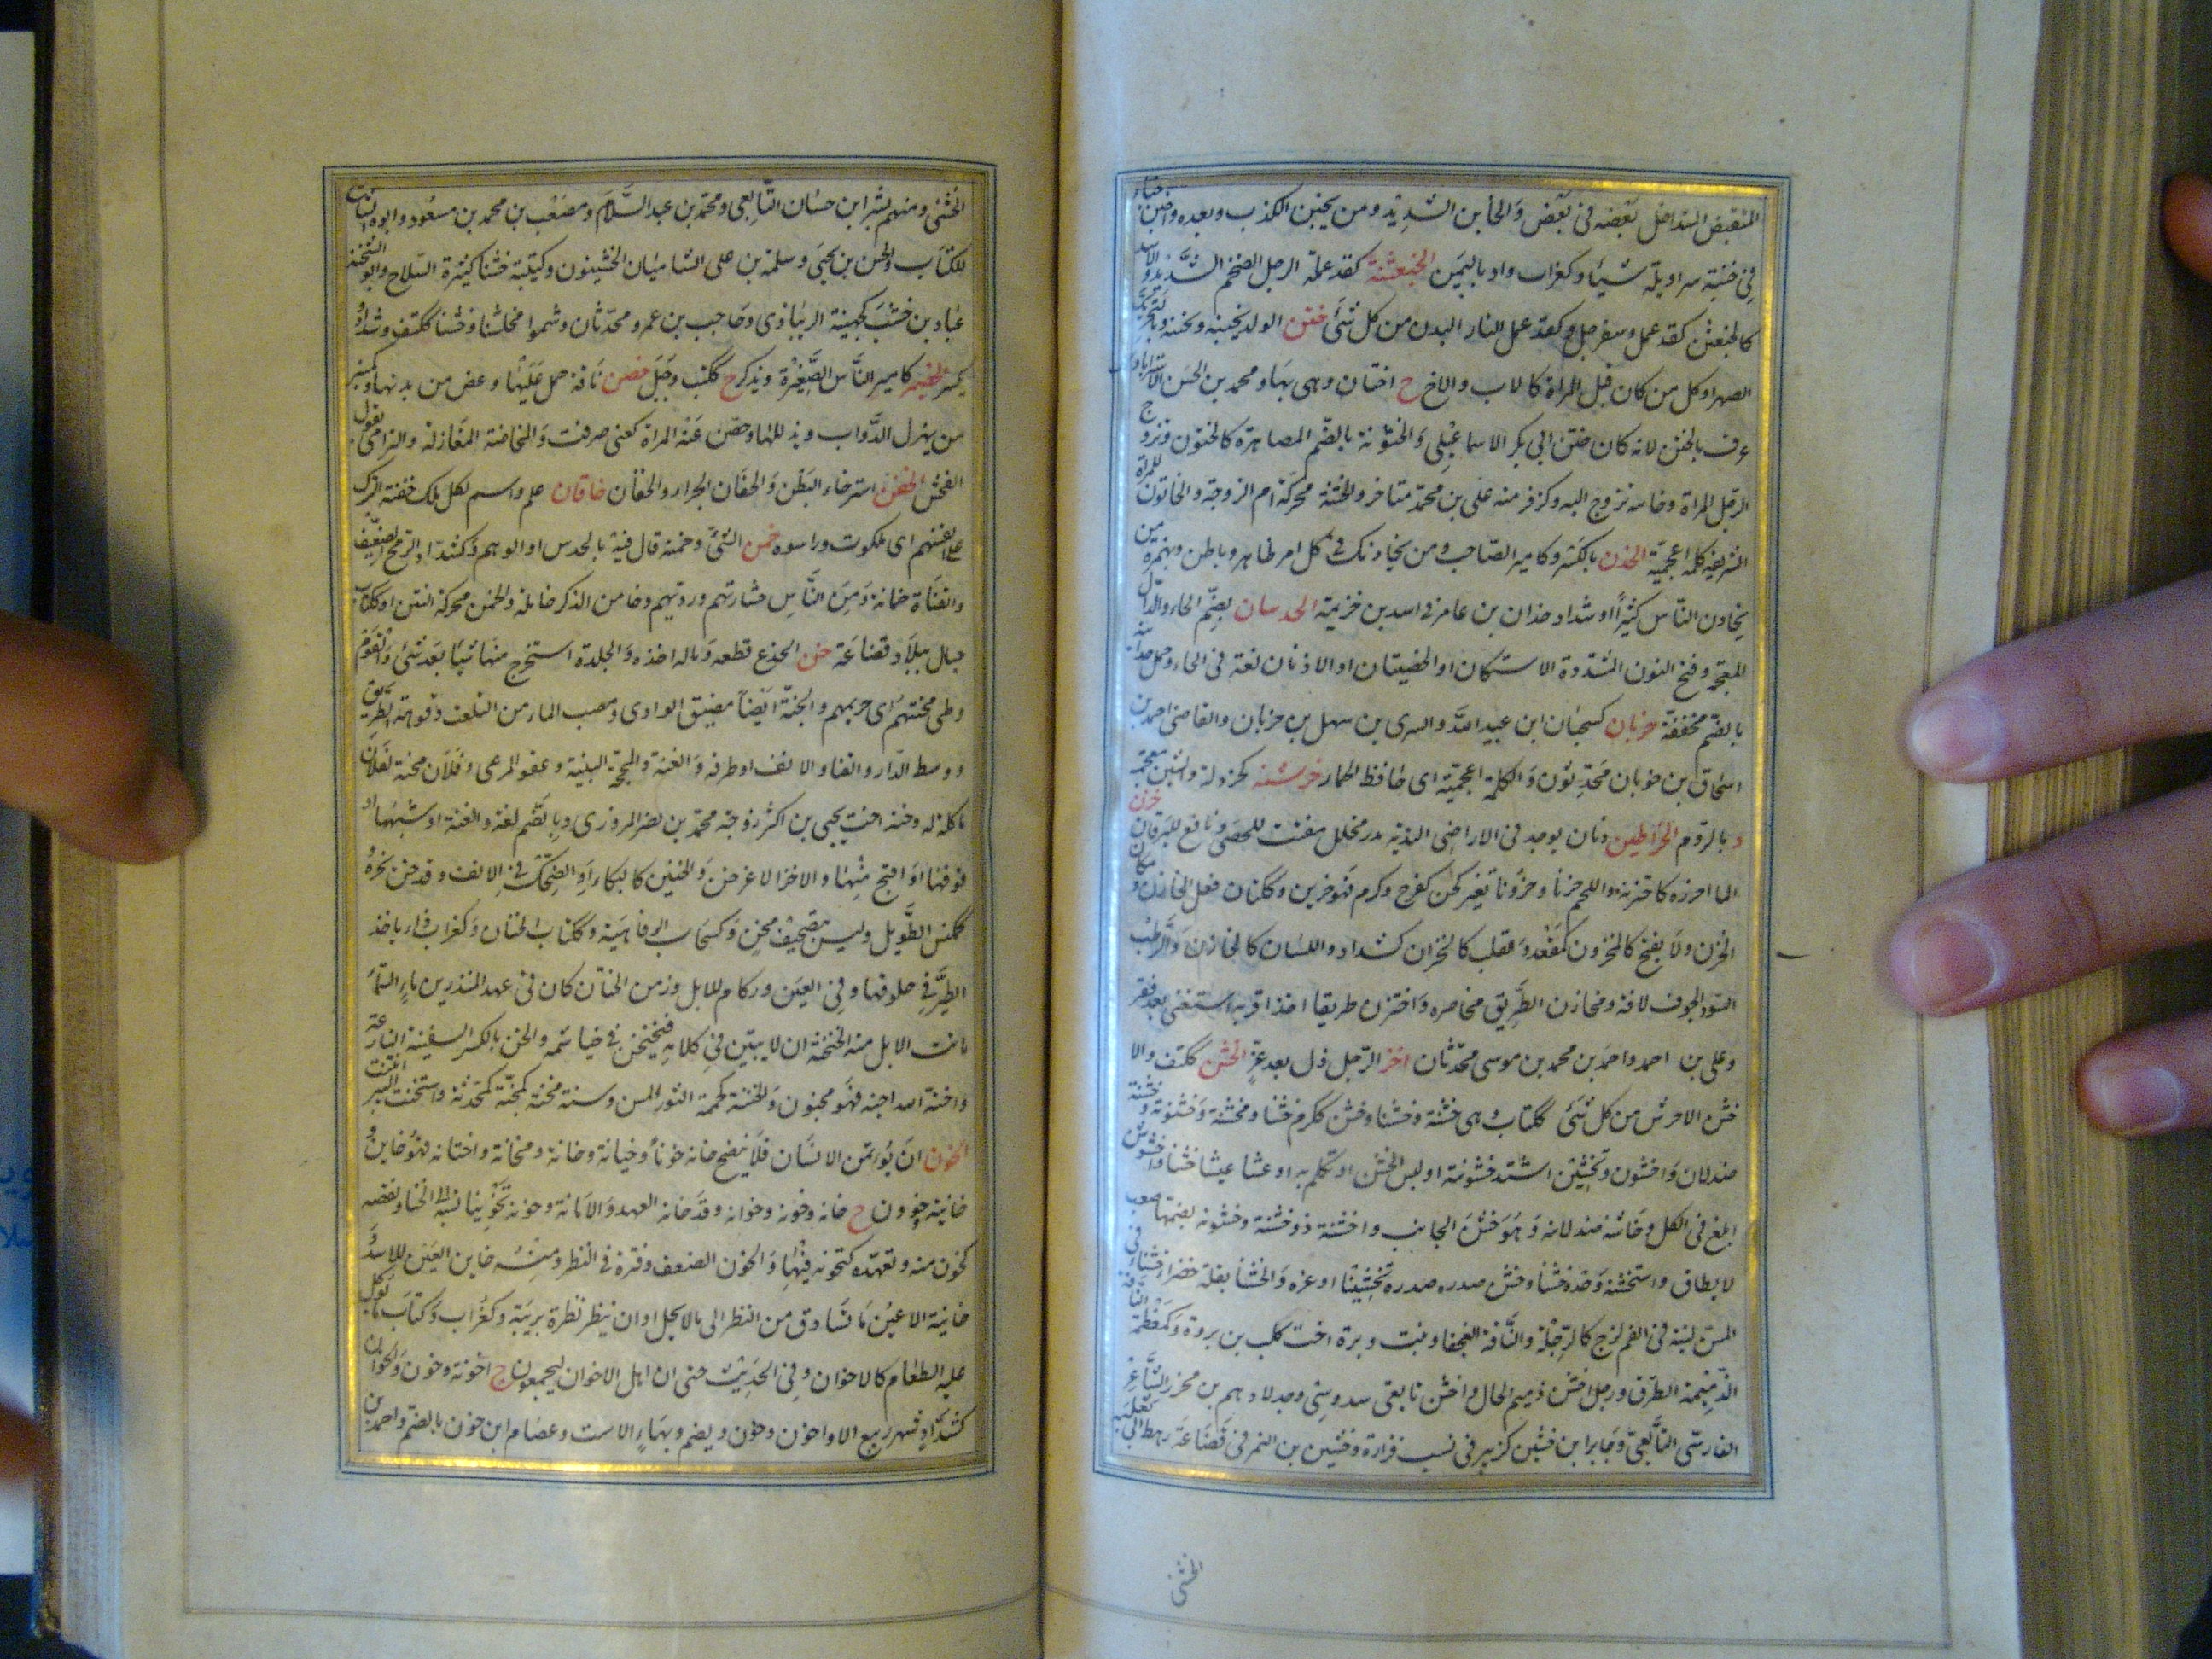 المنقبض المتداخل بعضه فى بعض والخابن الشديد ومن يخبن الكذب ويعده واخبن خباء
فى خبنة سراويله شيئا وكغراب واد باليمن الخبعثنة كقذعملة الرجل الضخم الشديد والاسد
كالخبعثن كقذعمل وسفرجل وكقذعمل التار البدن من كل شئ ختن الولد يختنه ويختنه
الصهر او كل من كان قبل المراة كالاب والاخ ج اختان وهى بهاء ومحمد بن الحسن الاستراباذى
عرف بالختن لانه كان ختن ابى بكر الاسماعيلى والختونة بالضم المصاهرة كالختون وتزوج
الرجل المراة وخاتنه تزوج اليه وكزفر منه على بن محمد متاخر والختنة محركة ام الزوجة والخاتون للمراة
الشريفة كلمة اعجمية الخدن بالكسر وكامير الصاحب ومن يخادنك فى كل امر ظاهر وباطن وبهمزة من
يخادن الناس كثيرا او شداد خذان بن عامر فى اسد بن خزيمة بضم الخاء والذال
المعجمة وفتح النون المشددة الاسكتان او الخصيتان او الاذنان لغة فى الحاء وجمل
بالضم مخففة خربان كسحبان ابن عبيد الله والسرى بن سهل بن خربان والقاضى احمد بن
اسحاق بن خربان محدثون والكلمة اعجمية اى حافظ الحمار خرشنة كخردلة والشين معجمة
د بالروم الخراطين ديدان يوجد فى الاراضى الندية مدر محلل مفتت للحصى ونافع لليرقان خزن
المال احرزه كاختزنه واللحم خزنا وخزونا تغير كخزن كفرح وكرم فهو خزين وككتاب فعل الخازن ومكان
الخزن ولا يفتح كالمخزن كمقعد والقلب كالخزان كشداد واللسان كالخازن والرطب
السود الجوف لافة ومخازن الطريق مخاصره واختزن طريقا اخذ اقربه استغنى بعد فقر
وعلى بن احمد واحمد بن محمد بن موسى محدثان اخز الرجل ذل بعد عز الخشن ككتف والا
خشن الاحرش من كل شئ ككتاب هى خشنة وخشناء وخشن ككرم خشنا ومخشنة وخشونة وخشنة
ضد لان واخشون وتخشن اشتد خشونته او لبس الخشن او تكلم به او عاش عيشا خشنا واخشوشن
ابلغ فى الكل وخاشنه ضد لاينه وهو خشن الجانب واخشنه ذو خشنة وخشونة بضمهما صعب
لا يطاق واستخشنه وجده خشنا وخشن صدره تخشينا اوغره والخشناء بقلة خضراء خشناء فى
المس لينة فى الفم لزج كالرجلة والناقة العجفاء وبنت وبرة اخت كلب بن وبرة وكمعظمة الناقة
الذميمة الطرق ورجل اخشن ذميم الحال واخشن تابعى سدوسى وجد لادهم بن محرز الشاعر
الفارسى التابعى وجابر ابن خشين كزبير فى نسب فزارة وخشين بن النمر فى قضاعة رهط ابى ثعلبة
الخشنى
الخشنى ومنهم بشر ابن حسان التابعى ومحمد بن عبد السلام ومصعب بن محمد بن مسعود وابوه
للكتاب والحسن بن يحيى وسلمة بن على الشاميان الخشنيون وكتيبة خشناء كثيرة السلاح وابو الخشناء
عباد بن خشيب كجهينة الربابذى وحاجب بن عمرو محدثان وسموا مخاشنا وخشنا ككتف وشداد
يكسر الخضين كامير الفاس الصغيرة ويذكر ج ككتب وجبل خضن ناقته حمل عليها وعض من بدنها وكمنبر
من يهزل الدواب ويذللها وخضن عنه المراة كعنى صرفت والمخاضنة المغازلة والترامى بقول
الفحش الخفن استرخاء البطن والخفان الجراد والخفان خاقان علم واسم لكل ملك خقنه الترك
على انفسهم اى ملكوه وراسوه خمن الشئ وخمنه قال فيه بالحدس او الوهم وكشداد الرمح الضعيف
والقناة خمانة ومن الناس خشارتهم ورديهم وخامن الذكر خامله والخمن محركة النتن او ككتاب
جبال ببلاد قضاعة خن الجذع قطعه وماله اخذه والجلة استخرج منها شيئا بعد شئ والقوم
وطى مخنتهم اى حريمهم والخنة ايضا مضيق الوادى ومصب الماء من التلعة وفوهة الطريق
ووسط الدار والفناء والانف او طرفه والغنة والمحجة البينة وعفو المرعى وفلان مخنة لفلان
ماكلة له وخنة اخت يحيى بن اكثم زوجة محمد بن نصر المروزى وبالضم لغة والغنة او شبهها او
فوقها او اقبح منها والاخن الاغن خن والخنين كالبكاء او الضحك فى الانف وقد خن يخن و
كمسن الطويل وليس بتصحيف مخن وكسحاب الرفاهية وككتاب الختان وكغراب داء ياخذ
الطير فى حلوقها وفى العين وزكام للابل وزمن الخنان كان فى عهد المنذر بن ماء السماء
ماتت الابل منه الخنخنة ان لا يبين فى كلامه فيخنخن فى خياشيمه والخن بالكسر السفينة الفارغة
واخنه الله اجنه فهو مجنون والخننة كحممة الثور المسن وسنة مخنة كمجنة كمحدثة واستخنت البير انتنت
الخون ان يؤتمن الانسان فلا ينصح خانه خونا وخيانة وخانة ومخانة واختانه فهو خاين
خاينة وخوون ج خانة وخونة وخوان وقد خانه العهد والامانة وخونه تخوينا نسبه الى الخيانة ونقصه
كخون منه وتعهده كتخونه فيهما والخون الضعف وفترة فى النظر ومنه خاين العين للاسد و
خاينة الاعين ما تسارق من النظر الى ما لا يحل او ان ينظر نظرة بريبة وكغراب وكتاب ما يوكل
عليه الطعام كالاخوان وفى الحديث حتى ان اهل الاخوان ليجتمعون ج اخونة وخون والخوان
كشداد شهر ربيع الاول ج اخونة ويضم وبهاء الاست وعصام ابن خون بالضم واحمد بن